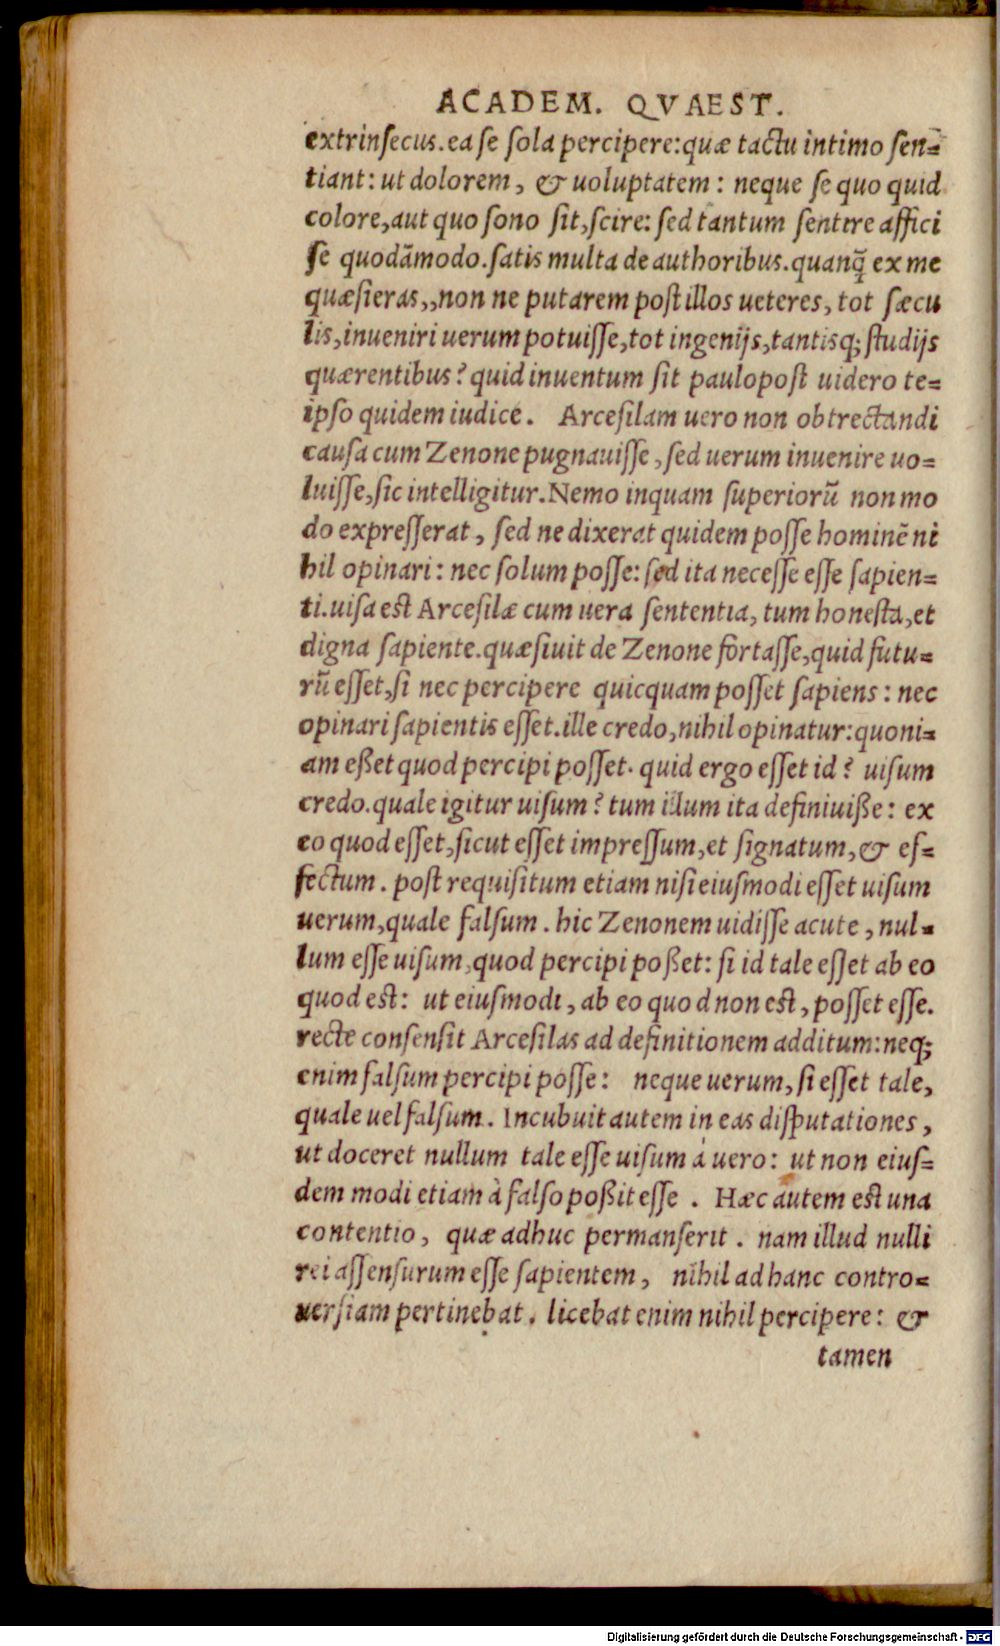 ACADEM. QVAEST.
extrinſecus. ea ſe ſola percipere: quæ tactu intimo ſen=
tiant: ut dolorem, & uoluptatem: neque ſe quo quid
colore, aut quo ſono ſit, ſcire: ſed tantum ſentire affici
ſe quodãmodo. ſatis multa de authoribus. quanq̃ ex me
quæſieras,, non ne putarem poſt illos ueteres, tot ſæcu
lis, inueniri uerum potuiſſe, tot ingenijs, tantisq; ſtudijs
quærentibus? quid inuentum ſit paulopoſt uidero te=
ipſo quidem iudice. Arceſilam uero non obtrectandi
cauſa cum Zenone pugnauiſſe, ſed uerum inuenire uo=
luiſſe, ſic intelligitur. Nemo inquam ſuperiorũ non mo
do expreſſerat, ſed ne dixerat quidem poſſe hominẽ ni
hil opinari: nec ſolum poſſe: ſed ita neceſſe eſſe ſapien=
ti. uiſa est Arceſilæ cum uera ſententia, tum honeſta, et
digna ſapiente. quæſiuit de Zenone fortaſſe, quid futu=
rũ eſſet, ſi nec percipere quicquam poſſet ſapiens: nec
opinari ſapientis eſſet. ille credo, nihil opinatur: quoni=
am eßet quod percipi poſſet. quid ergo eſſet id? uiſum
credo. quale igitur uiſum? tum illum ita definiuiße: ex
eo quod eſſet, ſicut eſſet impreſſum, et ſignatum, & ef=
fectum. poſt requiſitum etiam niſi eiuſmodi eſſet uiſum
uerum, quale falſum. hic Zenonem uidiſſe acute, nul=
lum eſſe uiſum, quod percipi poßet: ſi id tale eſſet ab eo
quod est: ut eiuſmodi, ab eo quod non est, poſſet eſſe.
recte conſenſit Arceſilas ad definitionem additum: neq;
enim falſum percipi poſſe: neque uerum, ſi eſſet tale,
quale uel falſum. Incubuit autem in eas diſputationes,
ut doceret nullum tale eſſe uiſum á uero: ut non eiuſ=
dem modi etiam à falſo poßit eſſe. Hæc autem est una
contentio, quæ adhuc permanſerit. nam illud nulli
rei aſſenſurum eſſe ſapientem, nihil ad hanc contro=
uerſiam pertinebat. licebat enim nihil percipere: &
tamen
Digitalisierung gefördert durch die Deutsche Forschungsgemeinschaft - DFG